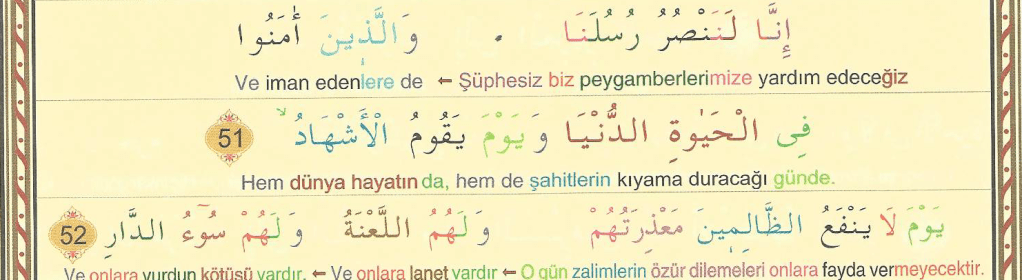 إِنَّا لَنَنْصُرُ رُسُلَنَا وَالَّذ۪ينَ اٰمَنُوا
Ve iman edenlere de ← Şüphesiz biz peygamberlerimize yardım edeceğiz
فِي الْحَيٰوةِ الدُّنْيَا وَيَوْمَ يَقُومُ الْأَشْهَادُۙ 51
Hem dünya hayatında, hem de şahitlerin kıyama duracağı günde.
يَوْمَ لَا يَنْفَعُ الظَّالِم۪ينَ مَعْذِرَتُهُمْ وَلَهُمُ اللَّعْنَةُ وَلَهُمْ سُوٓءُ الدَّارِ 52
Ve onlara yurdun kötüsü vardır. ← Ve onlara lanet vardır ← O gün zalimlerin özür dilemeleri onlara fayda vermeyecektir.